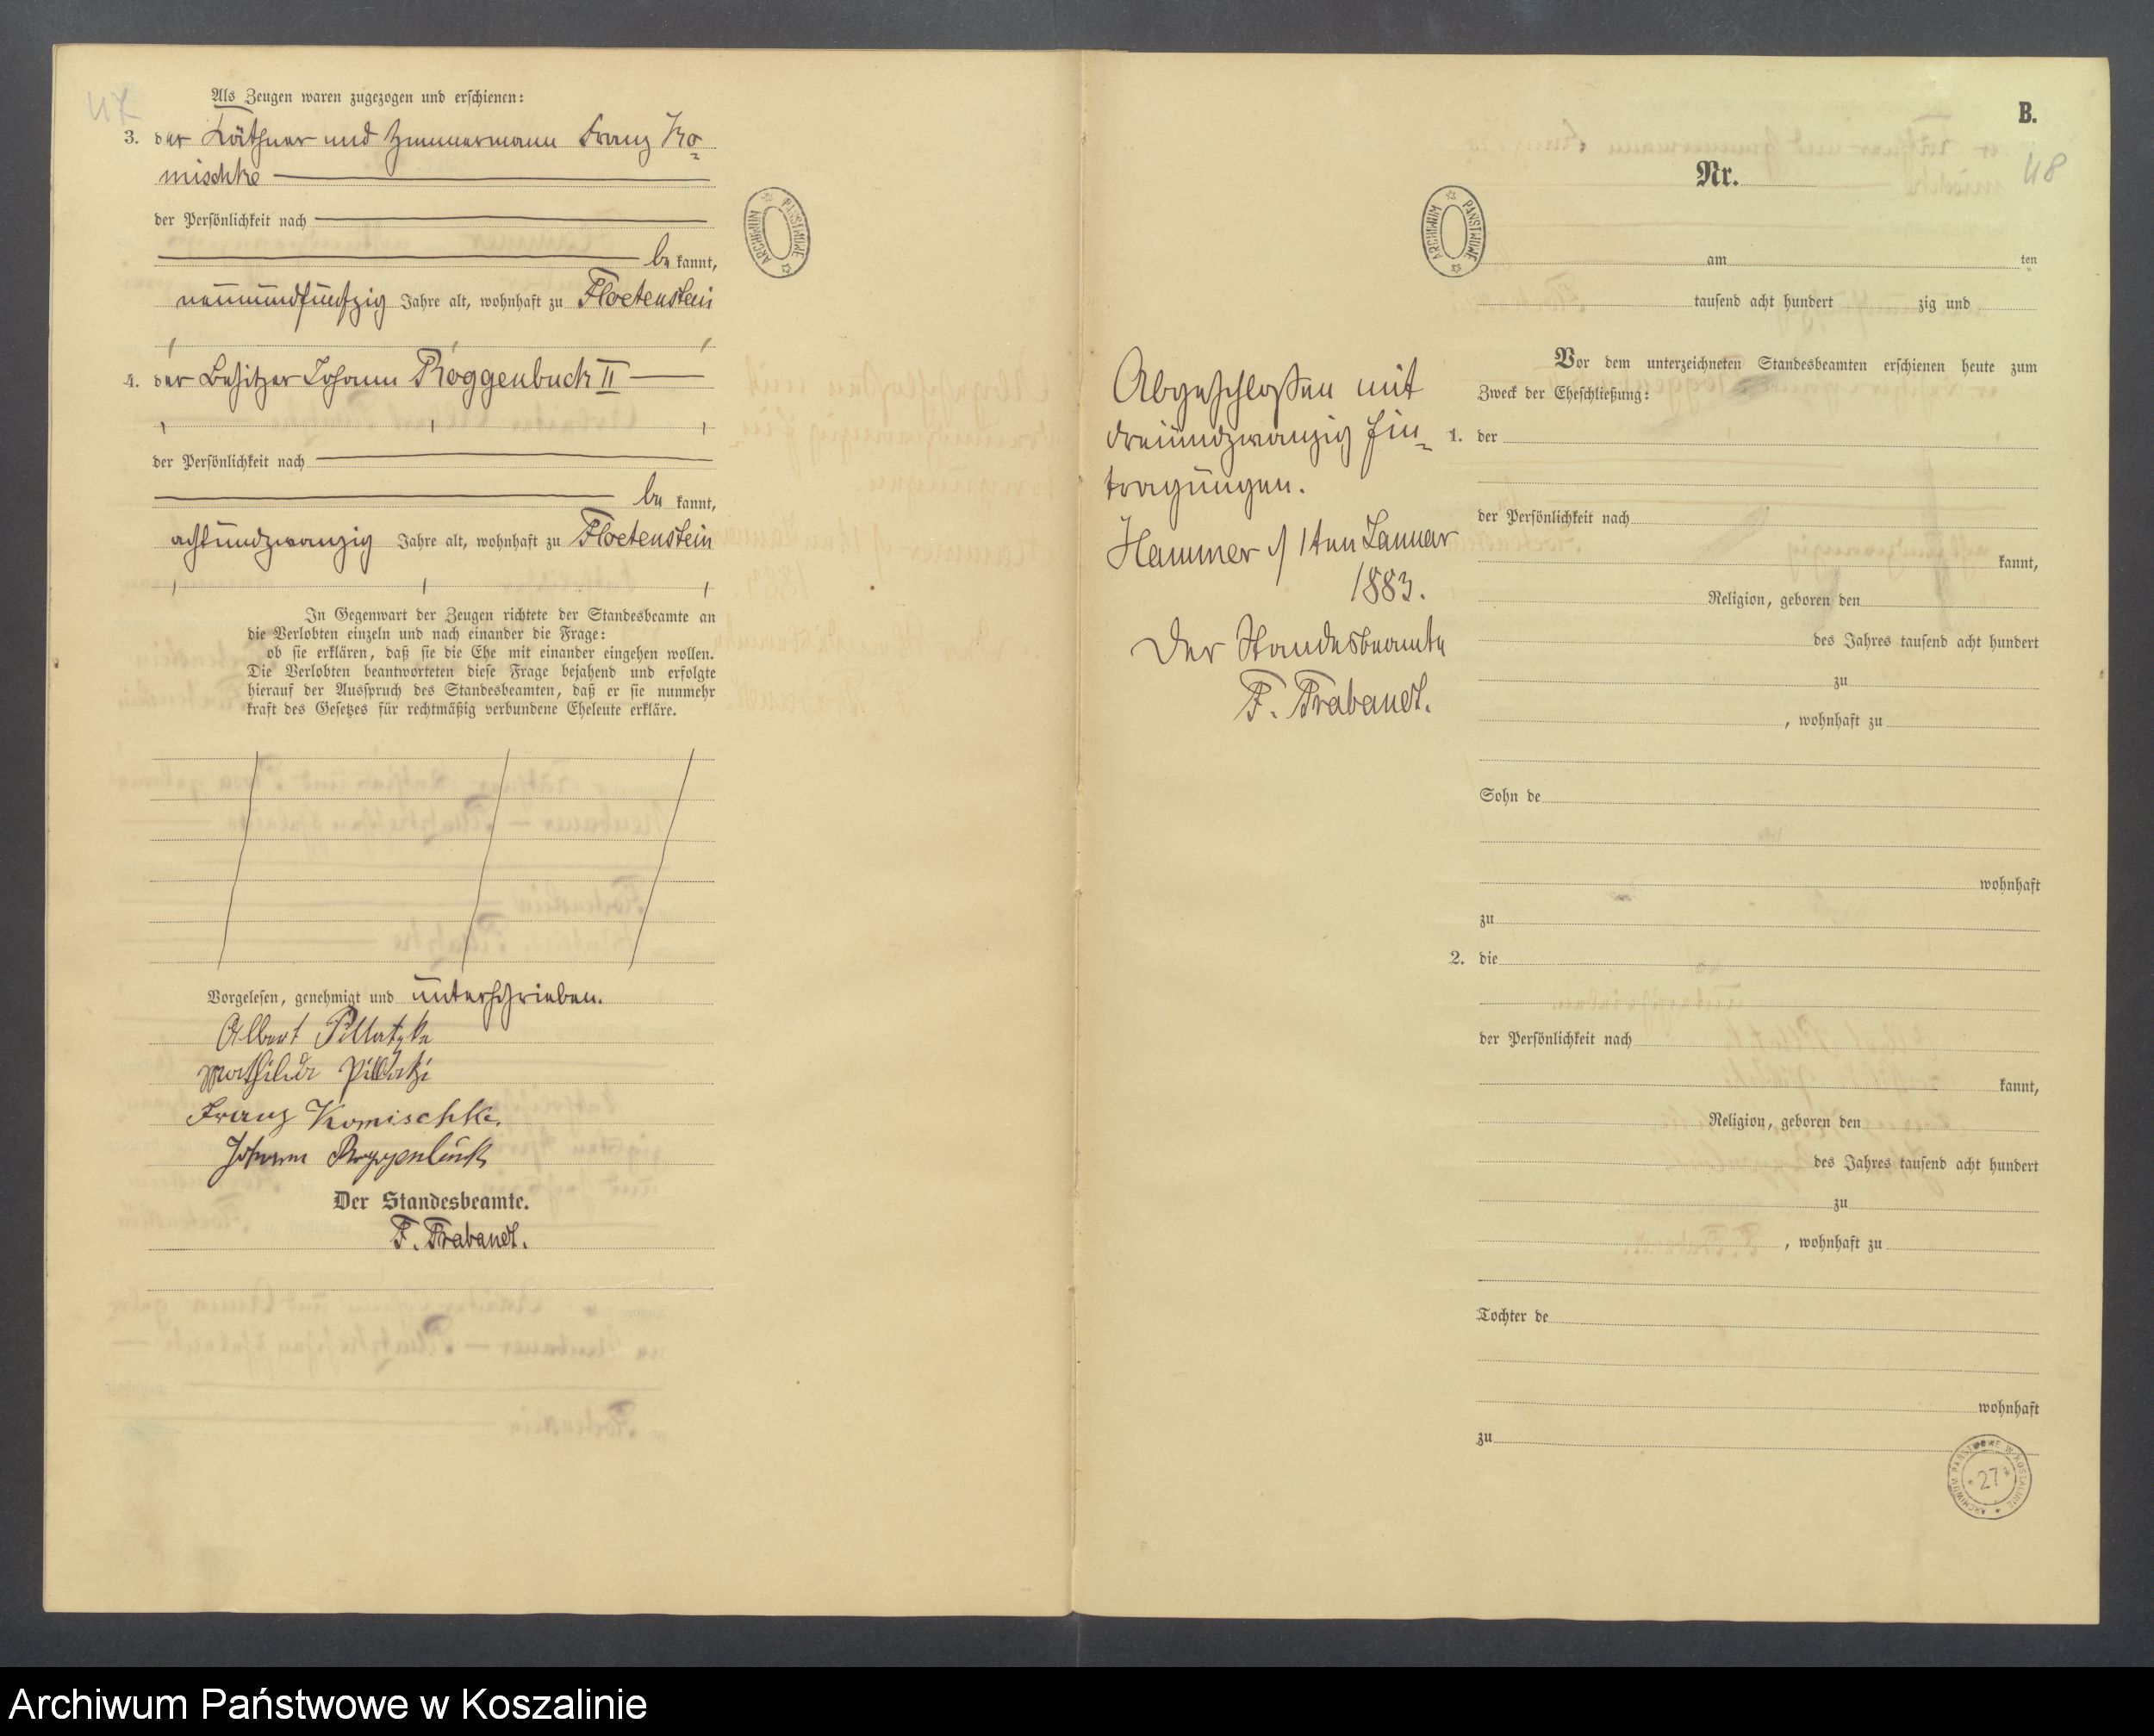 47
Als Zeugen waren zugezogen und erschienen:
3. der Käthner und Zimmermann Franz Ko-
mischke
der Persönlichkeit nach
be kannt,
neunundfünfzig Jahre alt, wohnhaft zu Floetenstein
4. der Besitzer Johann Roggenbuck II
der Persönlichkeit nach
be kannt,
achtundzwanzig Jahre alt, wohnhaft zu Floetenstein
In Gegenwart der Zeugen richtete der Standesbeamte an
die Verlobten einzeln und nach einander die Frage:
ob sie erklären, daß sie die Ehe mit einander eingehen wollen.
Die Verlobten beantworteten diese Frage bejahend und erfolgte
hierauf der Ausspruch des Standesbeamten, daß er sie nunmehr
kraft des Gesetzes für rechtmäßig verbundene Eheleute erkläre.
Vorgelesen, genehmigt und unterschrieben.
Albert Pillatzke
Mathilde Pillatzki
Franz Komischke.
Johann Roggenbuck
Der Standesbeamte.
F. Trabandt.
ARCHIWUM PAŃSTWOWE
B.
48
Nr.
ARCHIWUM PAŃSTWOWE
am ten
tausend acht hundert zig und
Vor dem unterzeichneten Standesbeamten erschienen heute zum
Zweck der Eheschließung:
Abgeschlossen mit
dreiundzwanzig Ein-
tragungen.
Hammer d/ 1ten Januar
1883.
Der Standesbeamte
F. Trabandt.
1. der
der Persönlichkeit nach
kannt,
Religion, geboren den
des Jahres tausend acht hundert
zu
, wohnhaft zu
Sohn de
wohnhaft
zu
2. die
der Persönlichkeit nach
kannt,
Religion, geboren den
des Jahres tausend acht hundert
zu
, wohnhaft zu
Tochter de
wohnhaft
zu
ARCHIWUM PAŃSTWOWE W KOSZALINIE
27
Archiwum Państwowe w Koszalinie